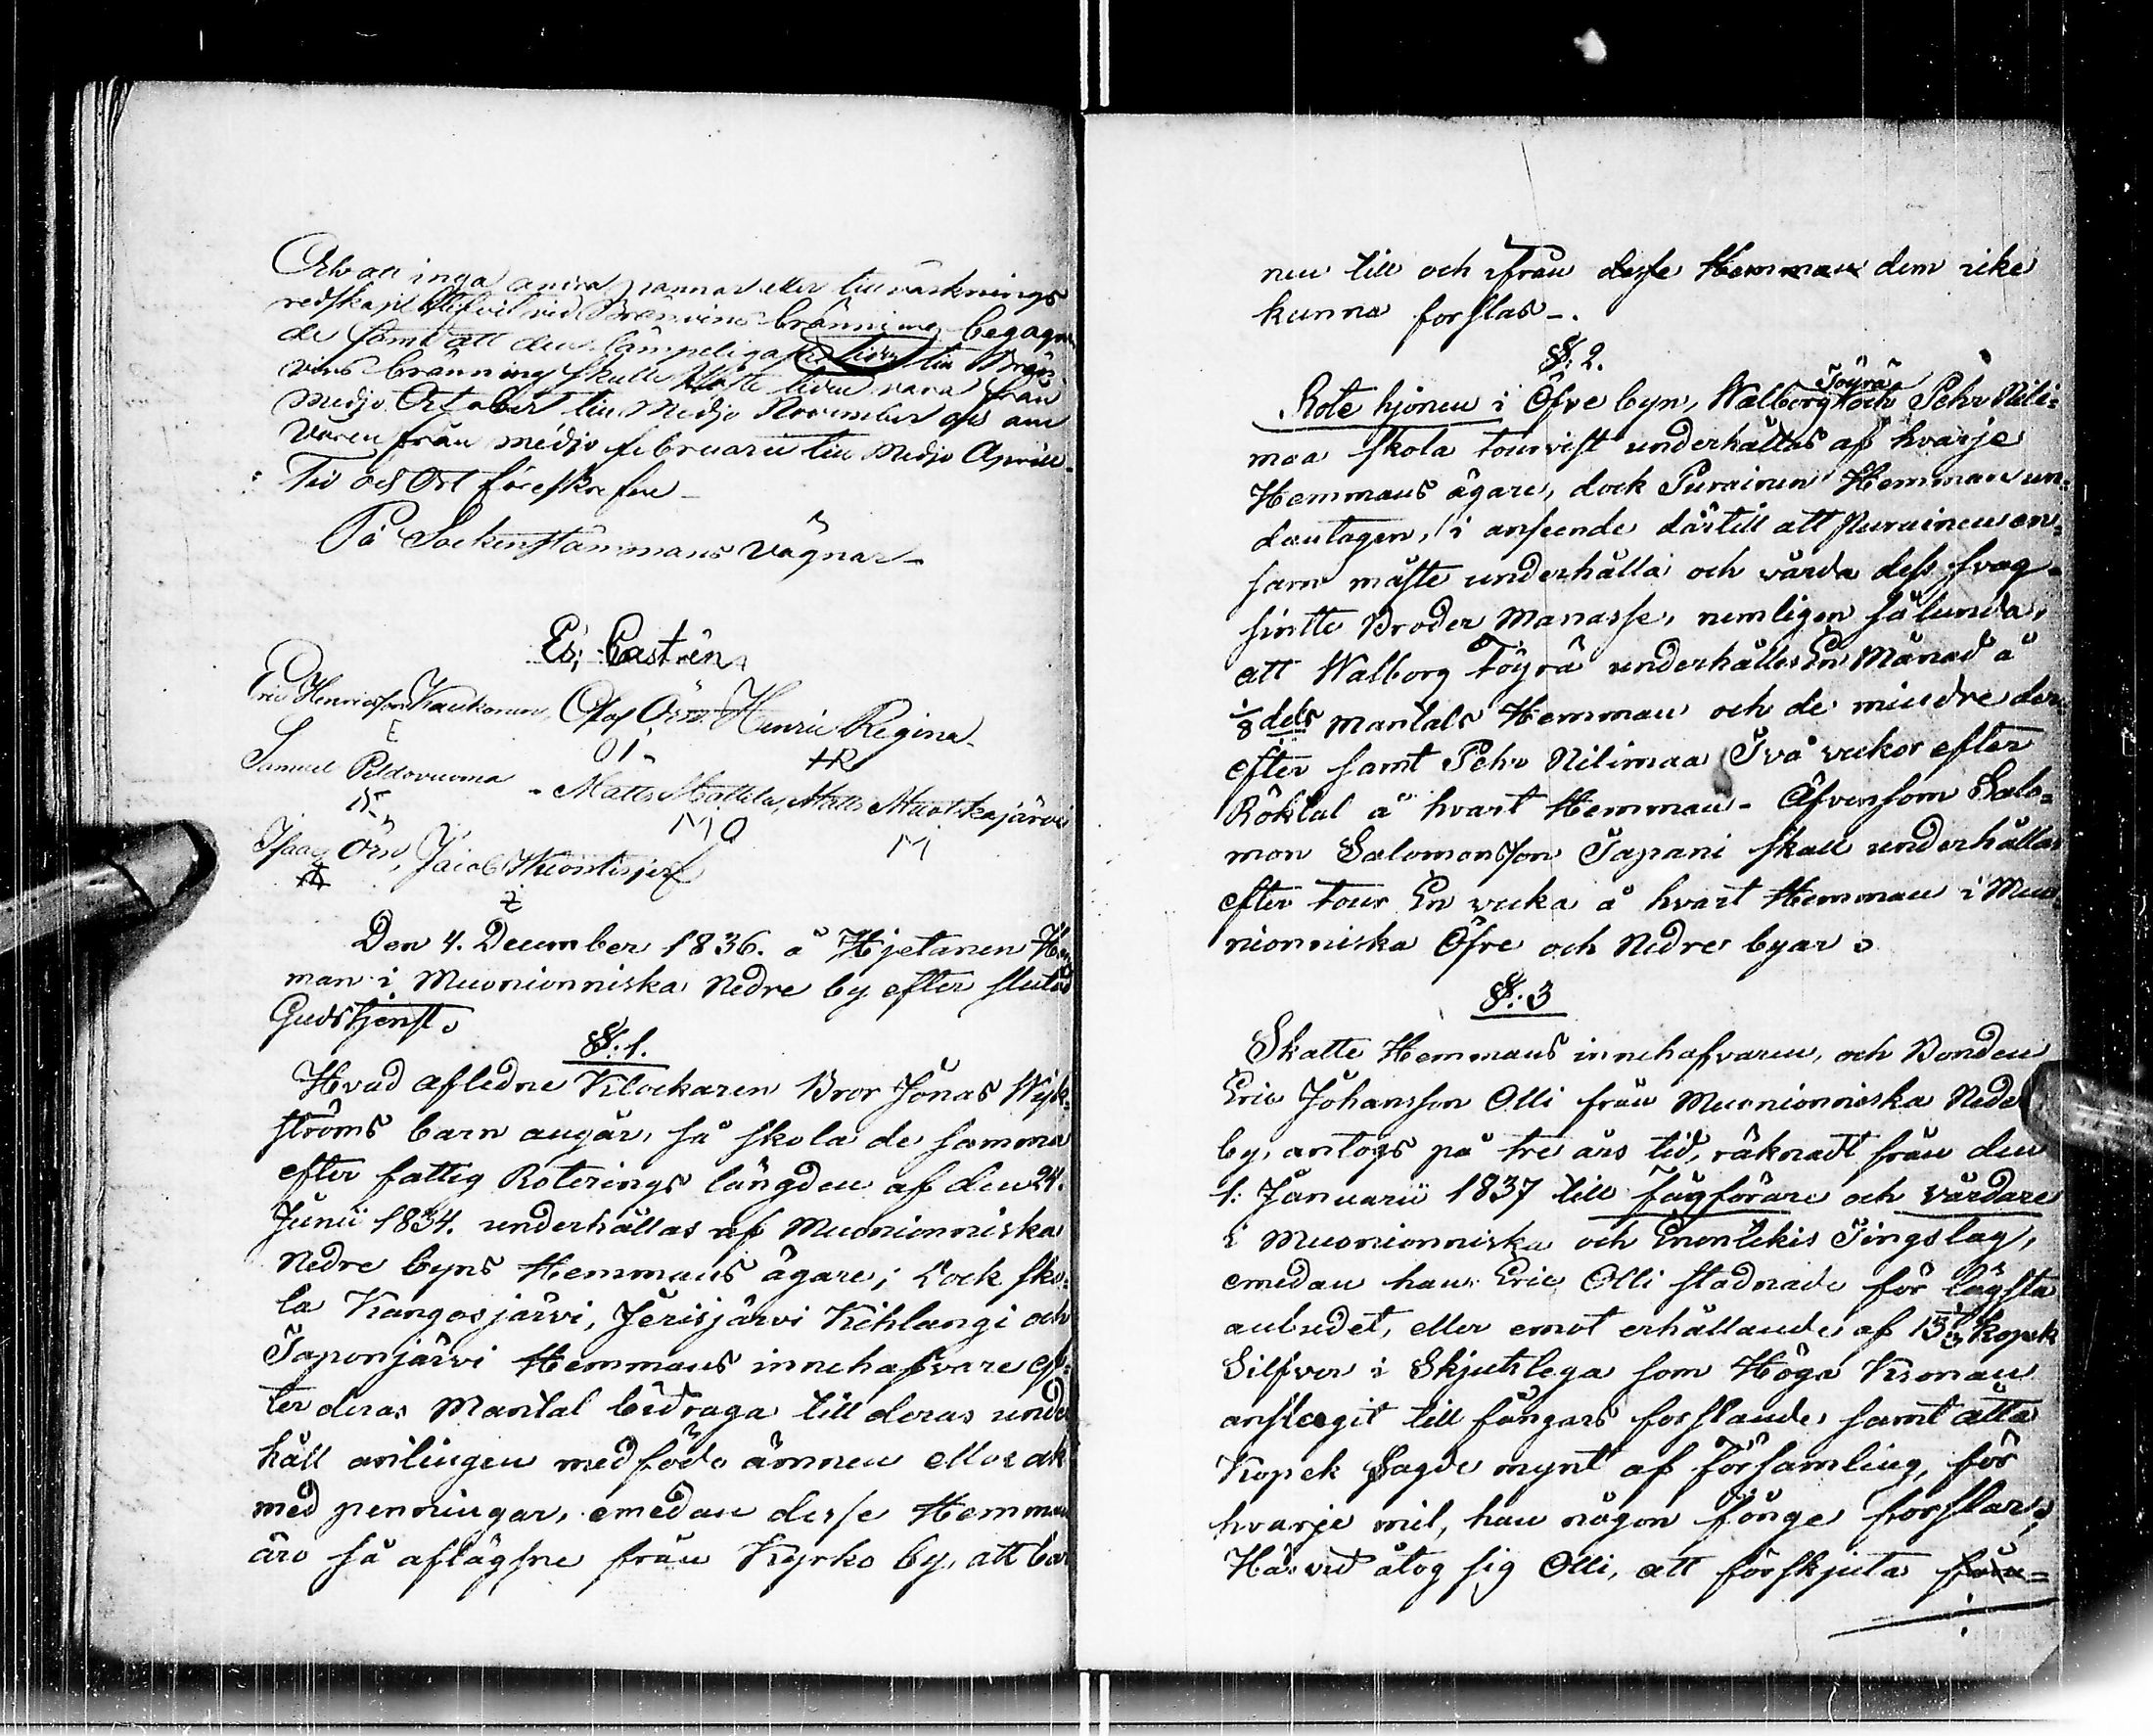 Och att inga andra pannor eller tillvärknings
redskap blifvit vid Bränvins bränning begagna
de samt att den lämpeligaste tiden till Brän
vins bränning skulle vara från
medjo October till Medjo November och om
våren från medjo februarii till Medjo April.
Tid och Ort föreskrefne
På Sockenstämmans vägnar
Es; Castrén
Eric Henricsson Kaukonen, Olof Örn. Henric Regina
E OÖ HR
Samuel Peldovuoma - Matts Mattila, Matts Muotkajärvi
MO M
Isaac Örn, Jacob Kuontisjerf
Den 4. December 1836. å Hjetanen Hem
man i Muonionniska Nedre by efter slutad
Gudstjenst.
§: 1.
Hvad afledne Klockaren Bror Jonas Wik-
ströms barn angår, så skola de samma
efter fattig Roterings längden af den 24.
Junii 1834. underhållas af Muonionniska
Nedre byns Hemmans ägare; dock sko-
la Kangosjärvi, Jerisjärvi Kihlangi och
Taponjärvi Hemmans innehafvare ef-
ter deras Mantal bidraga till deras under
håll antingen med födo ämnen eller ock
med penningar, emedan desse Hemman
äro så aflägsne från Kyrko by, att bar
nen till och ifrån desse Hemman dem icke
kunna forslas -.
§: 2.
Töyrä
Rote hjonen i Öfre byn, Walborg och Pehr Nili-
maa skola tourvist underhållas af hvarje
Hemmans ägare, dock Purainen Hemman un-
dantagen, i anseende därtill att Purainen en-
sam måste underhålla och vårda dess svag-
sinte Broder Manasse, nemligen sålunda,
att Walborg Töyrä underhålles En Månad å
1/8 dels mantals Hemman och de mindre der-
efter samt Pehr Nilimaa Två veckor efter
Röktal å hvart Hemman - Äfvensom Salo-
mon Salomonsson Tapani skall underhållas
efter tour En vecka å hvart Hemman i Muo
nionniska Öfre och Nedre byar.
§: 3
Skatte Hemmans innehafvaren, och Bonden
Eric Johansson Olli från Muonionniska Nedre
by, antogs på tre års tid, räknadt från den
1: Januarii 1837 till fångförare och vårdare
i Muonionniska och Enontekis Tingslag,
emedan han Eric Olli stadnade för lägsta
anbudet, eller emot erhållande af Kopek
Silfver i Skjutslega som Höga Kronan
anslagit till fångars forslande samt åtta
Kopek Sagde mynt af församling, för
hvarje mil, han någon fånge forslar;
Härvid åtog sig Olli, att förskjuta från=